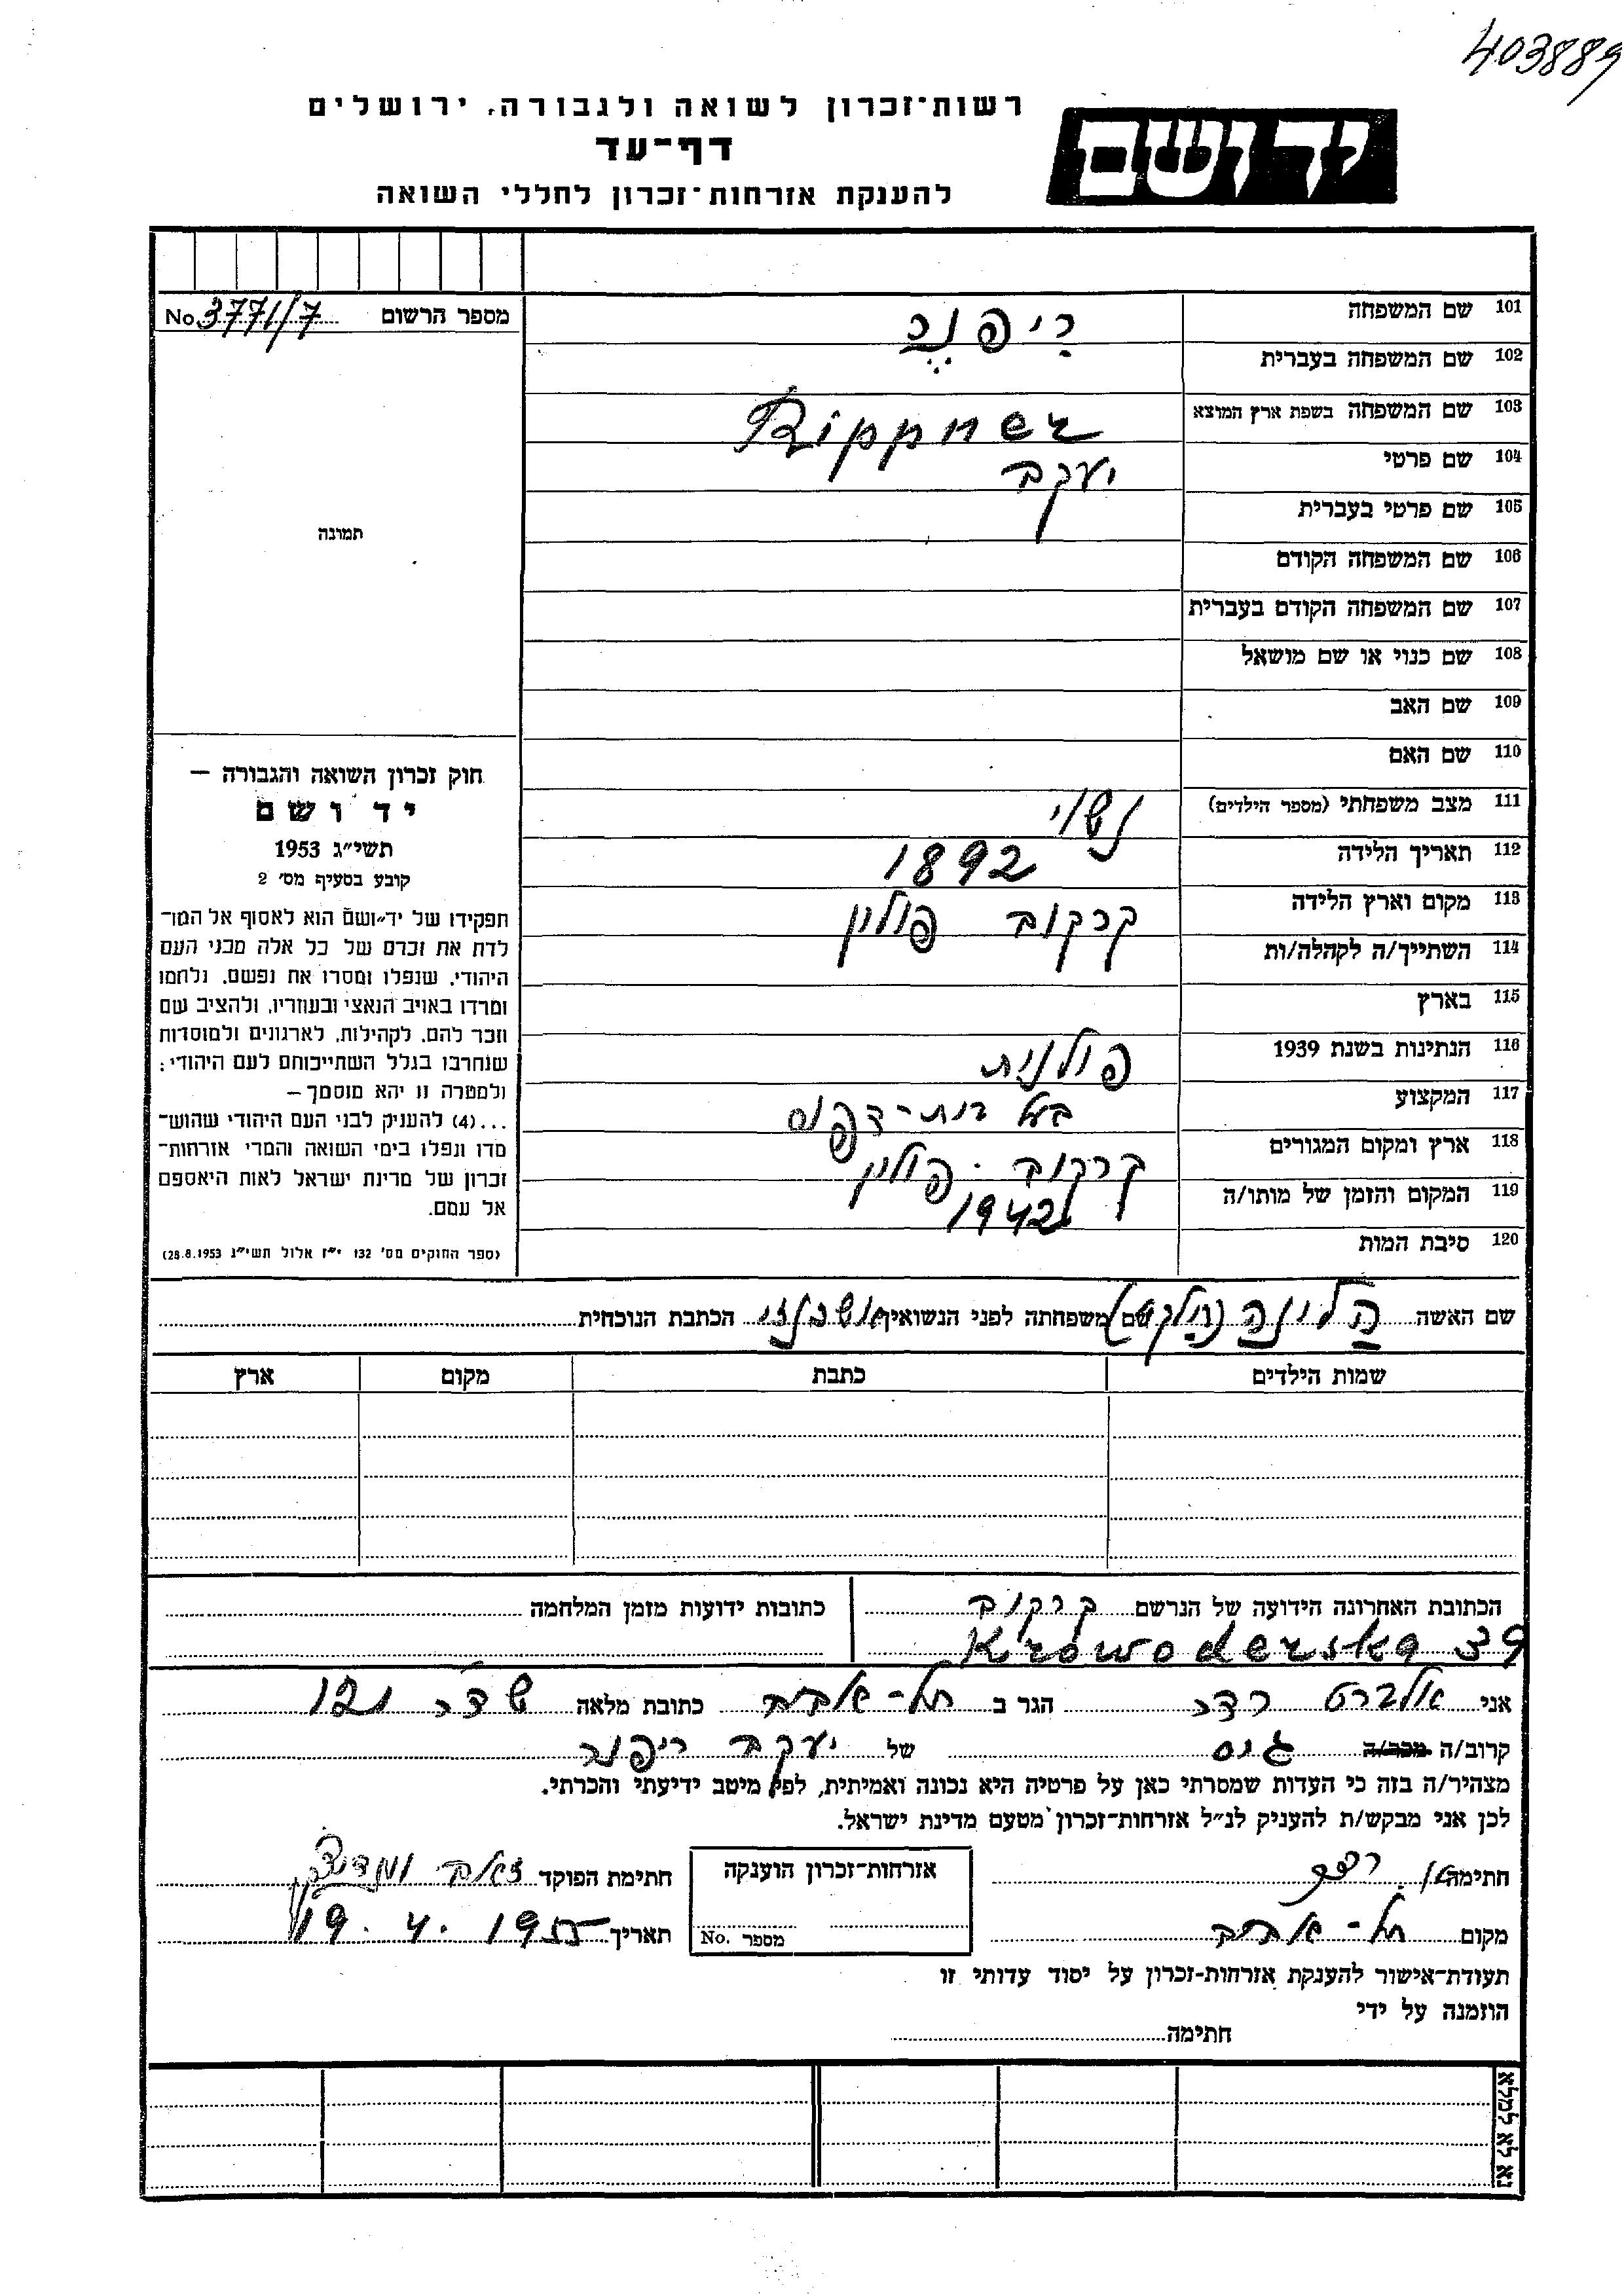 403889
רשות־זכרון לשואה ולגבורה, ירושלים
דף־עד
להענקת אזרחות־זכרון לחללי השואה
יד ושם
מספר הרשום No. 3771/7
תמונה
101 שם המשפחה ריפנר
102 שם המשפחה בעברית
103 שם המשפחה בשפת ארץ המוצא Rippner
104 שם פרטי יעקב
105 שם פרטי בעברית
106 שם המשפחה הקודם
107 שם המשפחה הקודם בעברית
108 שם כנוי או שם מושאל
109 שם האב
110 שם האם
111 מצב משפחתי (מספר הילדים) נשוי
112 תאריך הלידה 1892
113 מקום וארץ הלידה קרקוב פולין
114 השתייך/ה לקהלה/ות
115 בארץ
116 הנתינות בשנת 1939 פולנית
117 המקצוע בעל בית-דפוס
118 ארץ ומקום המגורים קרקוב - פולין
119 המקום והזמן של מותו/ה 1942
120 סיבת המות
חוק זכרון השואה והגבורה —
יד ושם
תשי״ג 1953
קובע בסעיף מס׳ 2
תפקידו של יד־ושם הוא לאסוף אל המו־
לדת את זכרם של כל אלה מבני העם
היהודי, שנפלו ומסרו את נפשם, נלחמו
ומרדו באויב הנאצי ובעוזריו, ולהציב שם
וזכר להם, לקהילות, לארגונים ולמוסדות
שנחרבו בגלל השתייכותם לעם היהודי;
ולמטרה זו יהא מוסמך—
...(4) להעניק לבני העם היהודי שהוש־
מדו ונפלו בימי השואה והמרי אזרחות־
זכרון של מדינת ישראל לאות היאספם
אל עמם.
(ספר החוקים מס׳ 132 י״ז אלול תשי״ג 28.8.1953)
שם האשה הלינה שם משפחתה לפני הנשואין אשכנזי הכתבת הנוכחית
שמות הילדים כתבת מקום ארץ
הכתובת האחרונה הידועה של הנרשם קרקוב כתובות ידועות מזמן המלחמה
Krowoderska 39
אני אלברט רדר הגר ב תל-אביב כתובת מלאה
קרוב/ה מכר/ה גיס של יעקב ריפנר
מצהיר/ה בזה כי העדות שמסרתי כאן על פרטיה היא נכונה ואמיתית, לפי מיטב ידיעתי והכרתי.
לכן אני מבקש/ת להעניק לנ״ל אזרחות־זכרון מטעם מדינת ישראל.
חתימה אזרחות־זכרון הוענקה חתימת הפוקד זאב
מקום תל-אביב מספר No. תאריך 19.4.1955
תעודת־אישור להענקת אזרחות־זכרון על יסוד עדותי זו
הוזמנה על ידי
חתימה
נא לא למלא